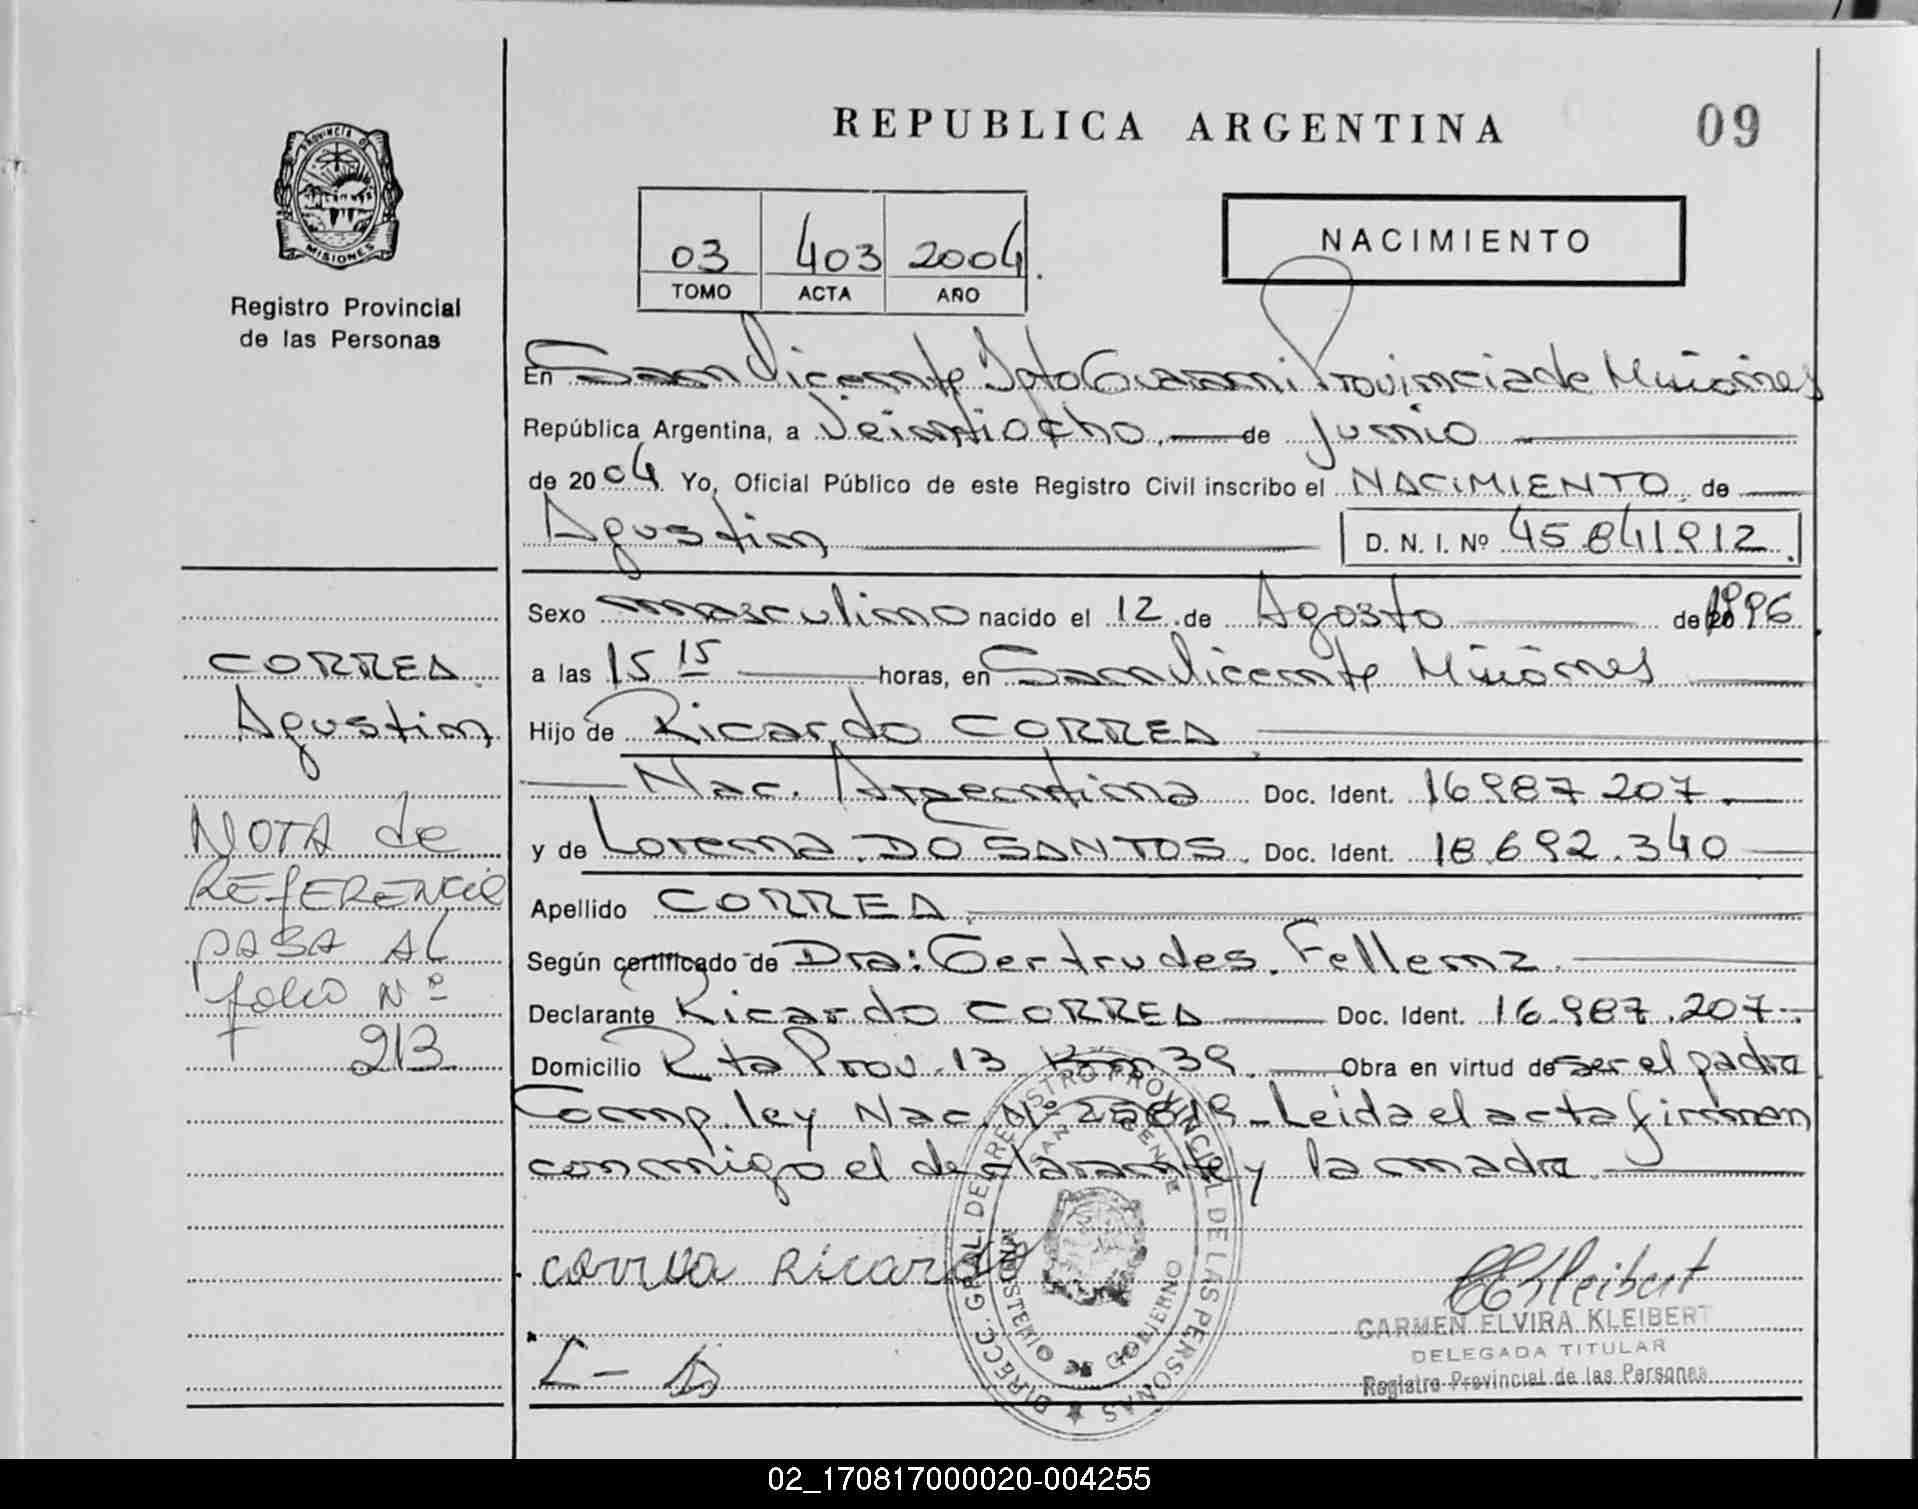 REPUBLICA ARGENTINA
09
PROVINCIA DE
MISIONES
Registro Provincial
de las Personas
03 403 2004
TOMO ACTA AÑO
NACIMIENTO
En San Vicente Dpto Guarani Provincia de Misiones
República Argentina, a Veintiocho, de Junio
de 2004 Yo, Oficial Público de este Registro Civil inscribo el NACIMIENTO de
Agustin D. N. I. Nº 45.841.912
Sexo masculino nacido el 12 de Agosto de 1996
a las 15 15 horas, en San Vicente Misiones
Hijo de Ricardo CORREA
Nac. Argentina Doc. Ident. 16.987.207
y de Lorena DO SANTOS. Doc. Ident. 18.692.340
Apellido CORREA
Según certificado de Dra: Gertrudes Fellenz
Declarante Ricardo CORREA Doc. Ident. 16.987.207
Domicilio Rta Prov. 13 Km 39. Obra en virtud de ser el padre
Comp. ley Nac. Nº 25819 - Leida el acta firman
conmigo el declarante y la madre
CORREA
Agustin
NOTA de
REFERENCIA
PASA AL
folio Nº
213
Correa Ricardo
L - D
DIRECC. GRAL. DEL REGISTRO PROVINCIAL DE LAS PERSONAS
SAN VICENTE
MINISTERIO DE GOBIERNO
CEKleibert
CARMEN ELVIRA KLEIBERT
DELEGADA TITULAR
Registro Provincial de las Personas
02_170817000020-004255